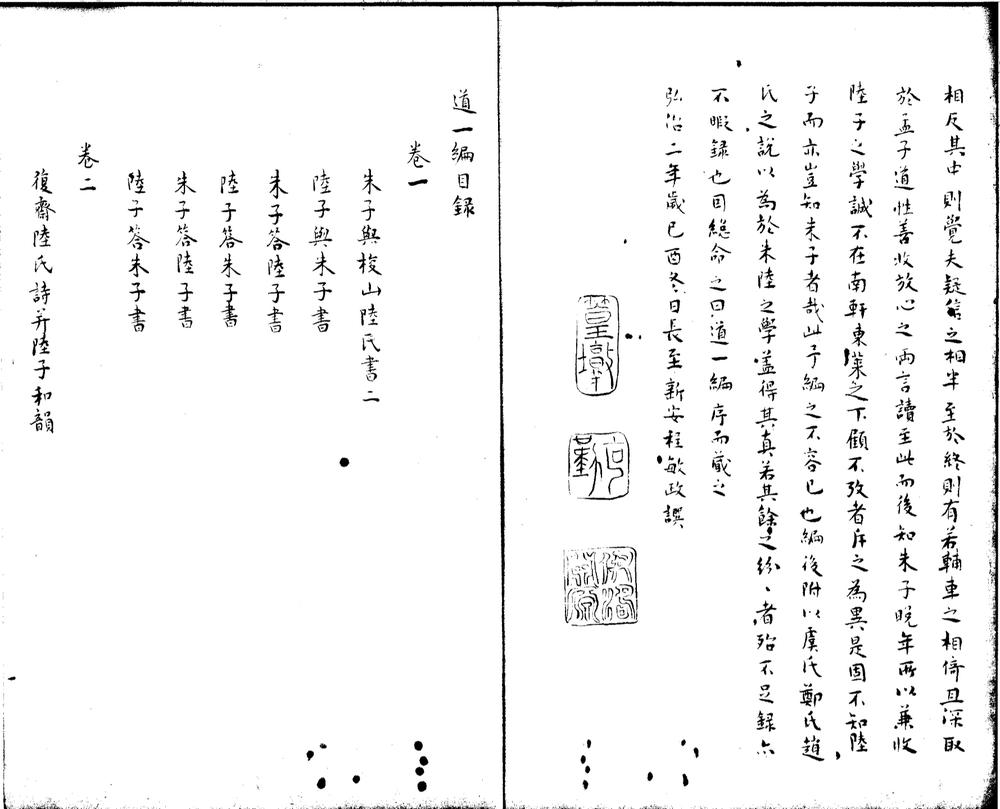 相反其中則覺夫疑信之相半至於終則有若輔車之相倚且深取
於孟子道性善收放心之兩言讀至此而後知朱子晚年所以兼收
陸子之學誠不在南軒東萊之下顧不攷者斥之為異是固不知陸
子而亦豈知朱子者哉此予編之不容已也編後附以虞氏鄭氏趙
氏之說以為於朱陸之學盖得其真若其餘之紛〻者殆不足録亦
不暇録也因緫命之曰道一編序而蔵之
弘治二年歲己酉冬日長至新安程敏政譔
篁墩
道一編目録
卷一
朱子與梭山陸氏書二
陸子與朱子書
朱子答陸子書
陸子答朱子書
朱子答陸子書
陸子答朱子書
卷二
復齋陸氏詩并陸子和韻